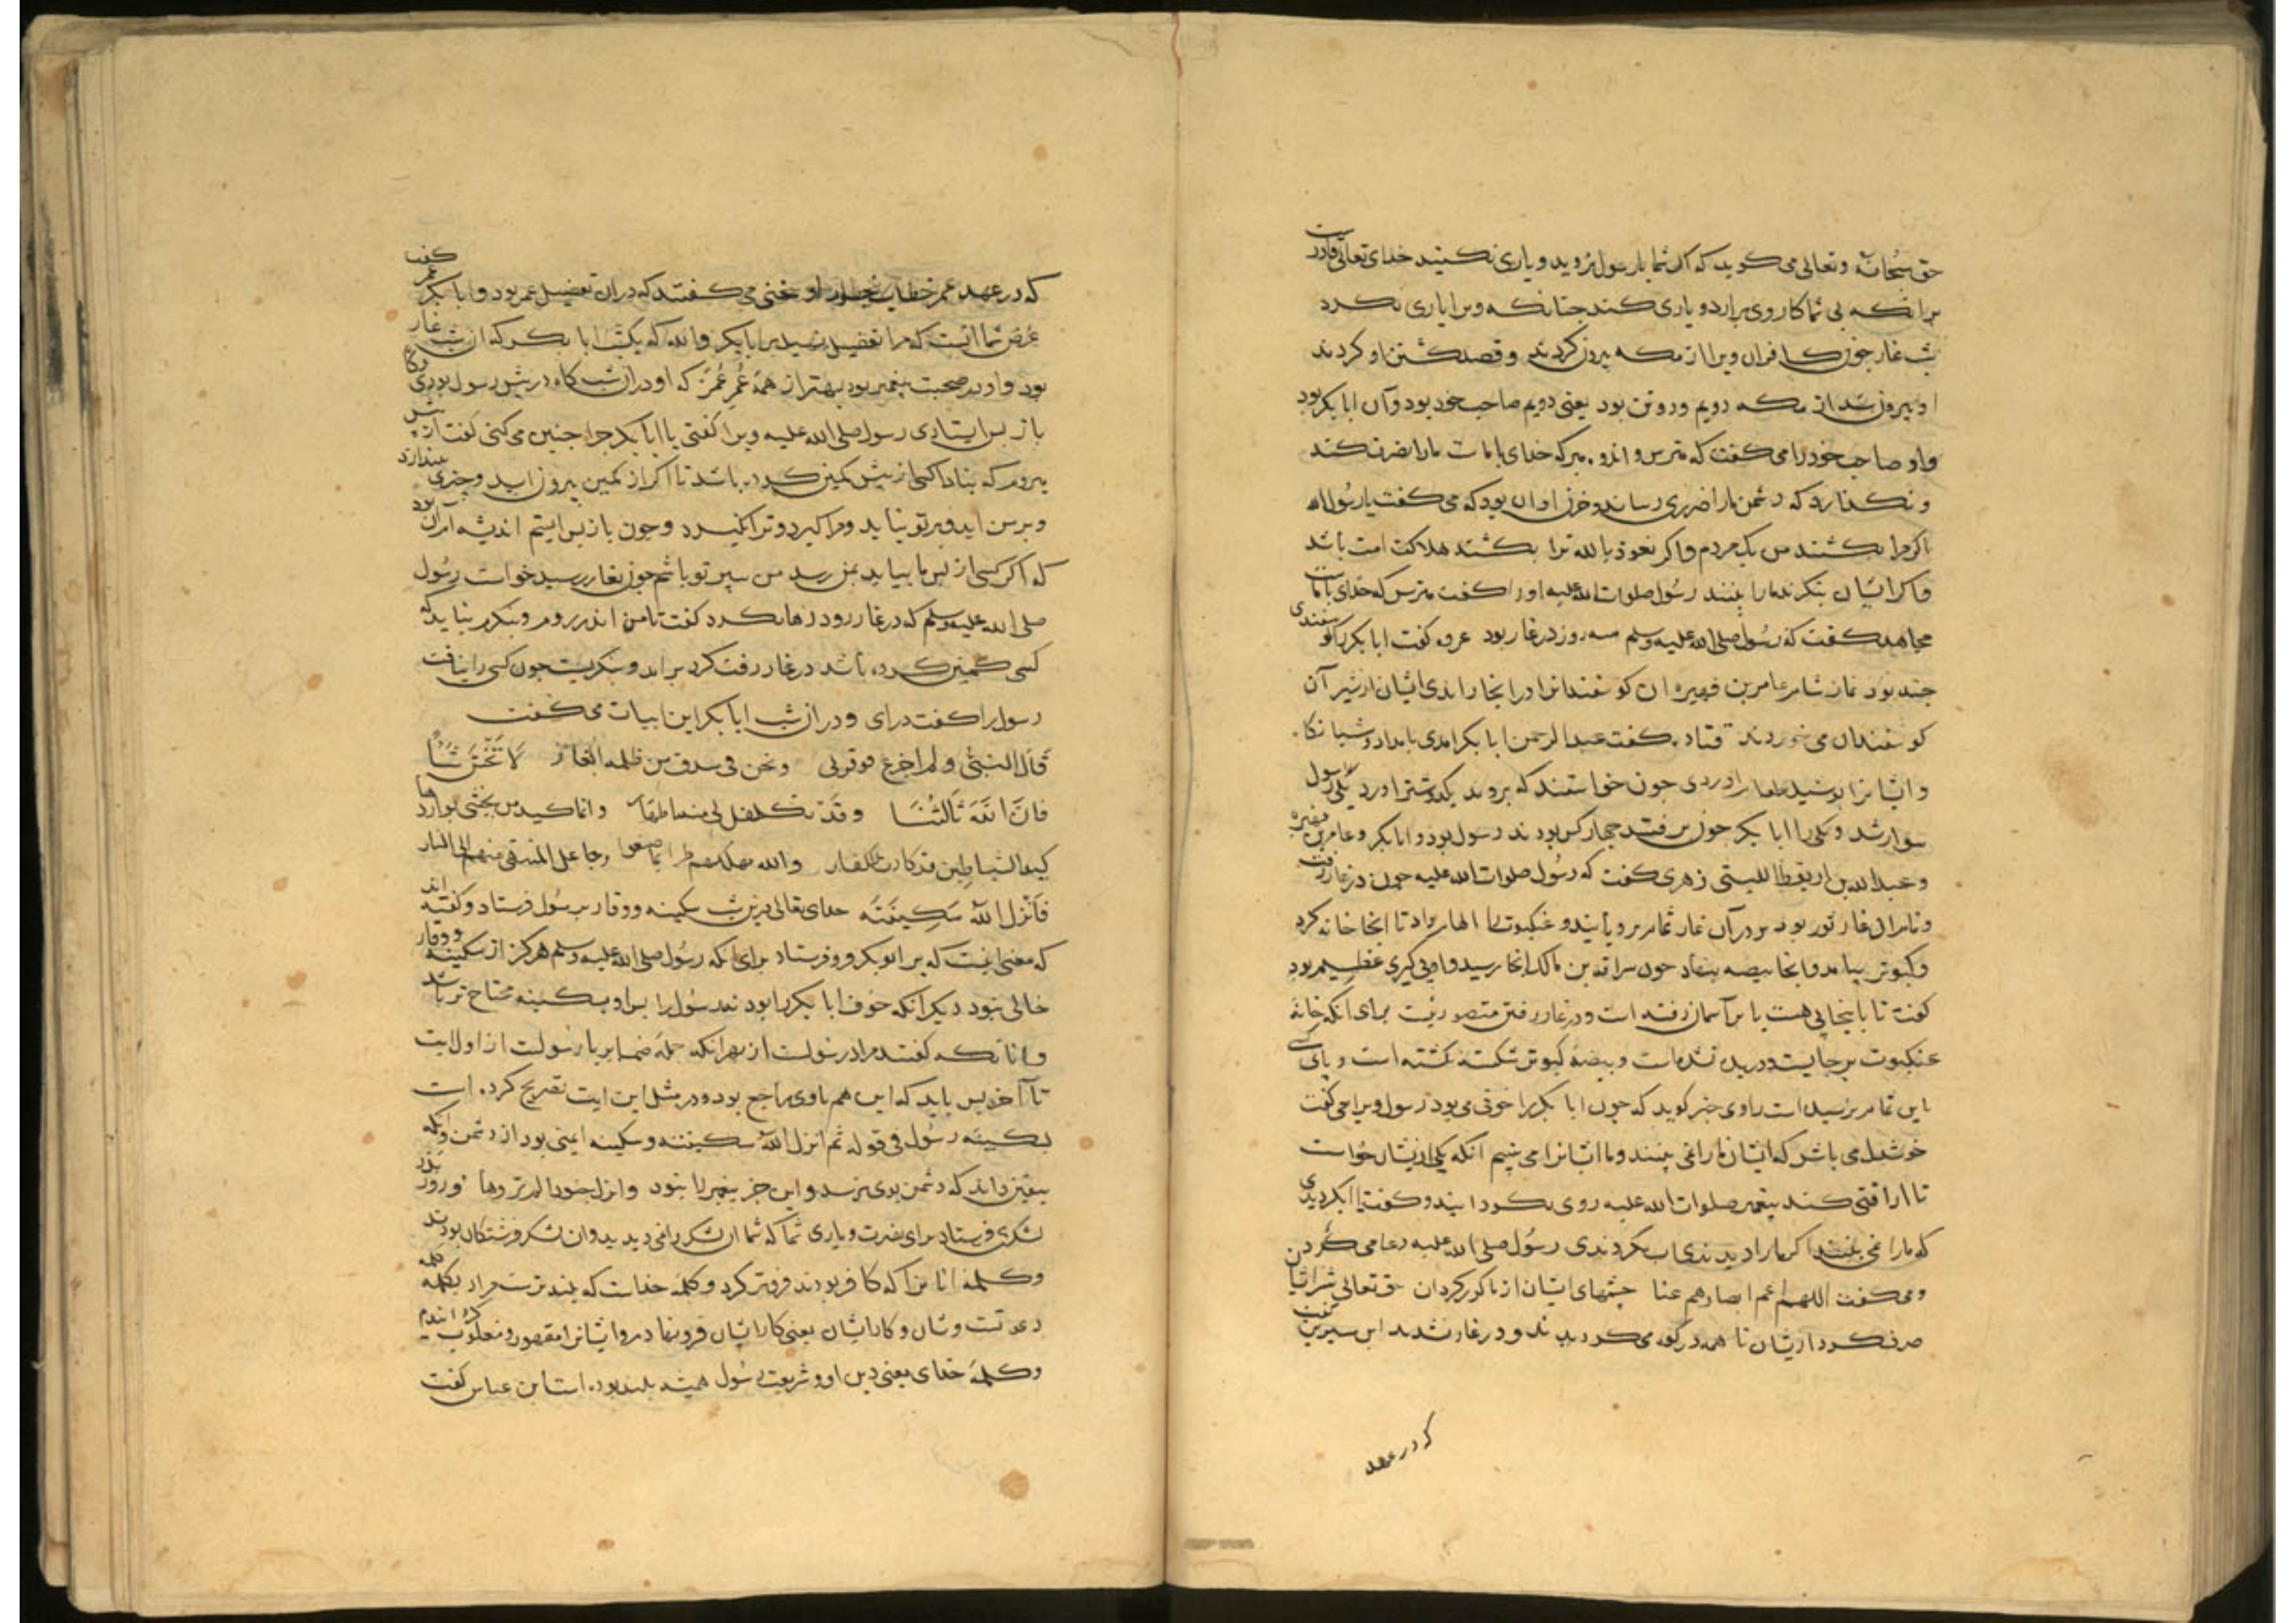 حق سبحانه وتعالی می کوید که اکر شما با رسول نروید و یاری نکنید خدای تعالی قادرست
برانکه بی شما کار وی برارد و یاری کند جنانکه ویرا یاری نکرد
شب غار جون کافران ویرا از مکه بیرون کردند و قصد کشتن او کردند
او بیرون شد از مکه دویم و دو تن بود یعنی دویم صاحب خود بود و آن ابا بکر بود
واو صاحب خود را می کفت که مترس و اندوه مبر که خدای با ماست مارا نصرت کند
و نکذارد که دشمن مارا ضرری رساند و حزن او ان بود که می کفت یا رسول الله
اکر مرا بکشند من یک مردم و اکر نعوذ بالله ترا بکشند هلاکت امت باشد
واکر ایشان بنکرند مارا بینند رسول صلوات الله علیه اورا کفت مترس که خدای با ماست
مجاهد کفت که رسول صلی الله علیه وسلم سه روز در غار بود عروه کفت ابا بکر را کوسفندی
جند بود نماز شام عامر بن فهیره ان کوسفندانرا در انجا راندی ایشان از شیر آن
کوسفندان می خوردند قتاده کفت عبد الرحمن ابا بکر امدی بامداد و شبانکاه
و ایشانرا طعام اوردی جون خواستند که بروند دو شتر اورد یکی رسول
سوار شد و یکی را ابا بکر جون برفتند جهار کس بودند رسول بود و ابا بکر و عامر بن فهیره
و عبدالله بن اریقط اللیثی زهری کفت که رسول صلوات الله علیه جون در غار رفت
و نام ان غار ثور بود بر در آن غار ثمام برویانید و عنکبوت را الهام داد تا انجا خانه کرد
و کبوتر بیامد و انجا بیضه بنهاد جون سراقه بن مالک انجا رسید و او پی کیری عظیم بود
کفت تا باینجا پی هست یا بر آسمان رفته است و در غار رفتن متصور نیست برای انکه خانه
عنکبوت بر جایست و دریده نشده است و بیضه کبوتر شکسته نکشته است و پای کسی
باین ثمام نرسیده است راوی خبر کوید که جون ابا بکر را خوفی می بود رسول ویرا می کفت
خوشدل می باش که ایشان مارا نمی بینند و ما ایشانرا می بینیم انکه یکی از ایشان خواست
تا اراقتی کند پیغمبر صلوات الله علیه روی بکردانید و کفت یا ابا بکر دیدی
که مارا نمی بینند اکر مارا دیدندی این نکردندی رسول صلی الله علیه دعا می کردن
و می کفت اللهم اعم ابصارهم عنا جشمهای ایشان از ما کور کردان حق تعالی شر ایشان
صرف کرد از ایشان تا همه در کوه می کردیدند و در غار نشدند ابن سیرین کفت
که در عهد
که در عهد عمر خطاب سخنی می کفتند که در ان تفضیل عمر بود و ابا بکر عمر کفت
غرض شما انست که مرا تفضیل نهید بر ابا بکر والله که یکشب ابا بکر که ان شب غار
بود و او در صحبت پیغمبر بود بهتر از همه عُمر عُمَر که او در ان شب کاه در پیش رسول بودی و کاه
باز پس ایستادی رسول صلی الله علیه ویرا کفتی یا ابا بکر جرا جنین می کنی کفت از پیش
میروم که نبادا کسی از پیش کمین کرده باشد تا اکر از کمین بیرون اید و جیزی بیندازد
و بر من اید و بر تو نیاید و مرا کیرد و ترا نکیرد و جون باز پس ایستم اندیشه ام ان بود
که اکر کسی از پس ما بیاید بمن رسد من سپر تو باشم جون بغار رسید خواست رسول
صلی الله علیه وسلم که در غار رود رها نکرد کفت تا من اندر روم و بنکرم نباید که
کسی کمین کرده باشد در غار رفت کرد برامد و بنکریست جون کسی را نیافت
رسول را کفت درای و در ان شب ابا بکر این ابیات می کفت
قال النبی ولم اجزع یوقرنی ونحن فی سدف من ظلمه الغار لا تخش شیئا
فان الله ثالثنا وقد تکفل لی منه اظهار وانما کید من تخشی بوادره
کید الشیاطین قد کادت لکفار والله مهلکهم طرا بما صنعوا وجاعل المنتهی منهم الی النار
فانزل الله سکینته خدای تعالی درین شب سکینه و وقار بر رسول فرستاد و کفته اند
که معنی انست که بر ابوبکر فرو فرستاد برای انکه رسول صلی الله علیه وسلم هرکز از سکینه و وقار
خالی نبود دیکر انکه خوف ابا بکر را بود نه رسول را بس او بسکینه محتاج تر باشد
و انانکه کفتند مراد رسولست از بهر انکه جمله ضمایر با رسولست از اول ایت
تا آخر بس باید که این هم باوی راجع بود و در مثل این ایت تصریح کرده است
بسکینه رسول فی قوله ثم انزل الله سکینته و سکینه ایمنی بود از دشمن وانکه
بیقین داند که دشمن بوی نرسد و این جز پیغمبر را نبود وانزل جنودا لم تروها و روز بدر
لشکری فرستاد برای نصرت و یاری شما که شما ان لشکر را نمی دیدید و ان لشکر فرشتکان بودند
و کلمه انانرا که کافر بودند فروتر کرد و کلمه خداست که بلند ترست مراد بکلمه کلمه
دعوتست و شان و کار ایشان یعنی کار ایشان فرو نهادم و ایشانرا مقهور و مغلوب کردانیدم
و کلمه خدای یعنی دین او و شریعت رسول همیشه بلند بوده است ابن عباس کفت